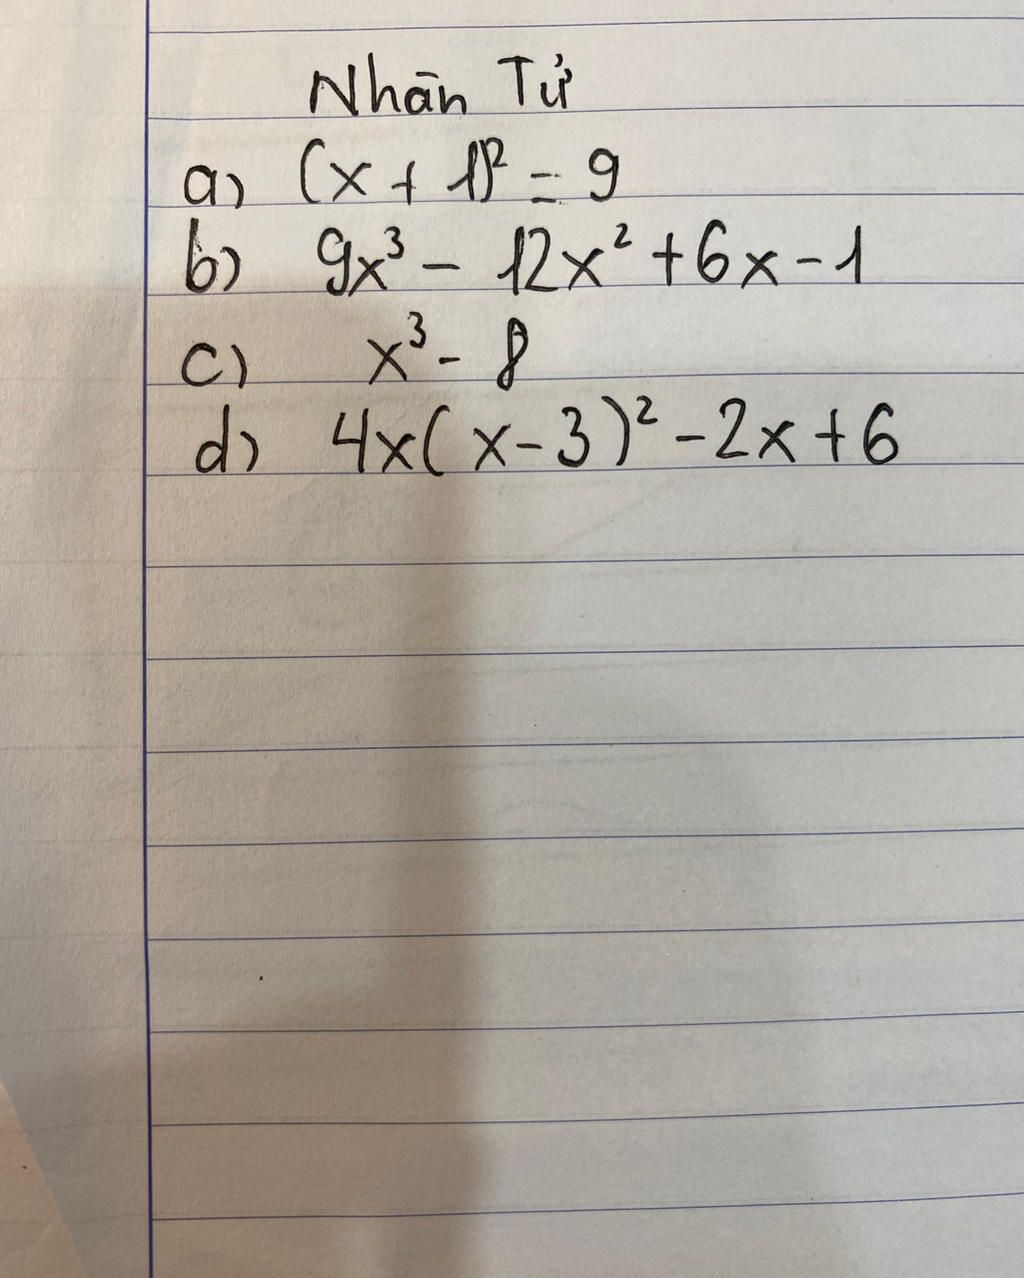 Nhãn Tử
a) (x + 1)² = 9
b) 9x³ - 12x² + 6x - 1
c) x³ - 8
d) 4x(x - 3)² - 2x + 6